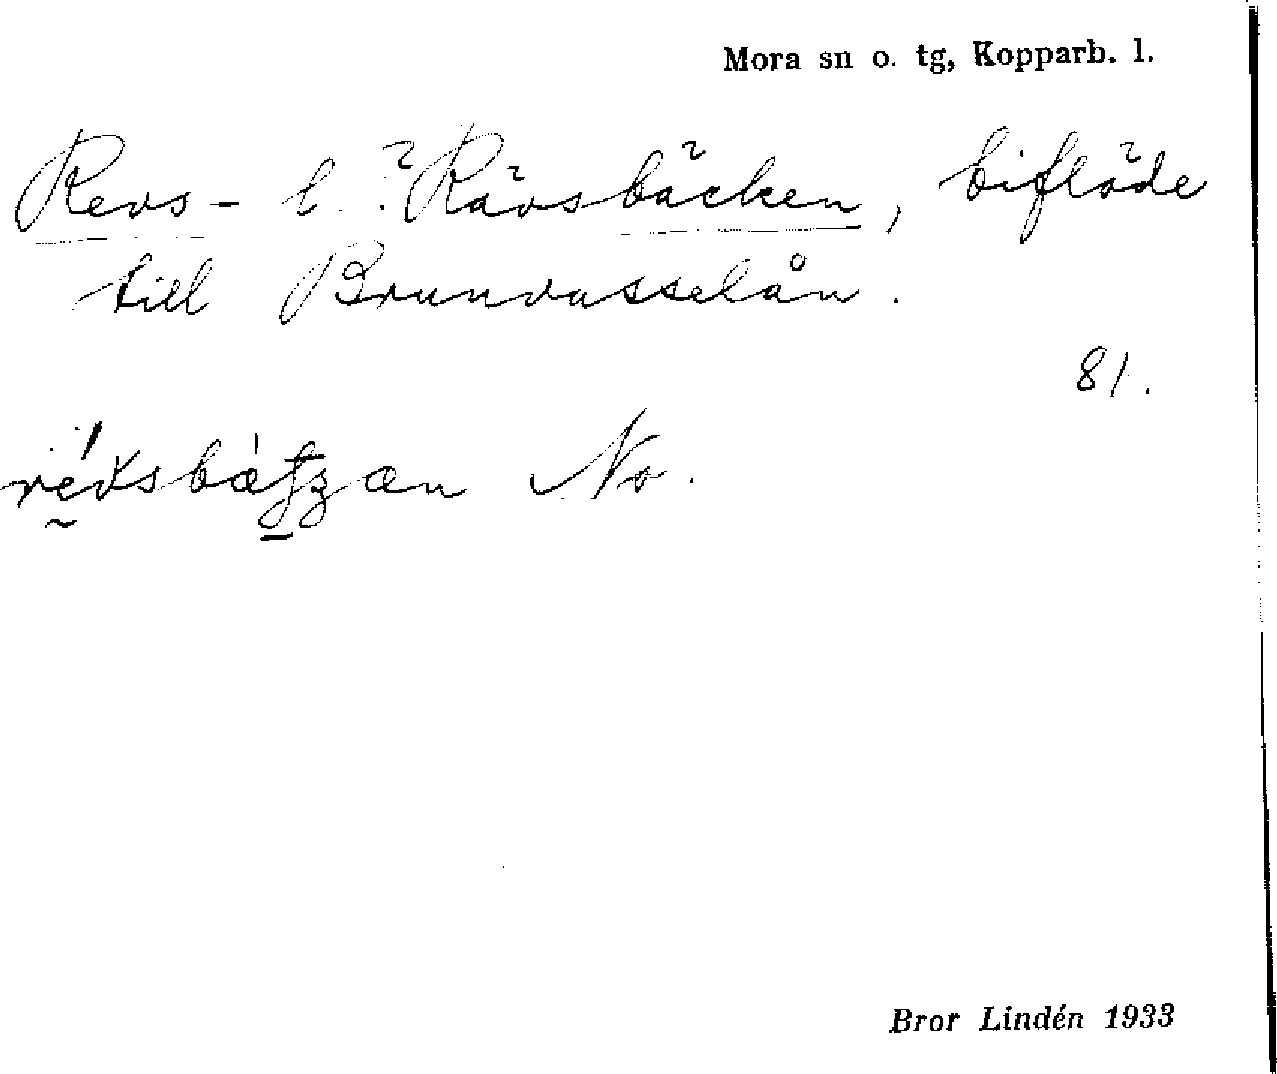 Mora sn o. tg, Kopparb. l.
Revs- l. ? Rävsbäcken, biflöde
till Brunvasselån.
81.
No.
Bror Lindén 1933